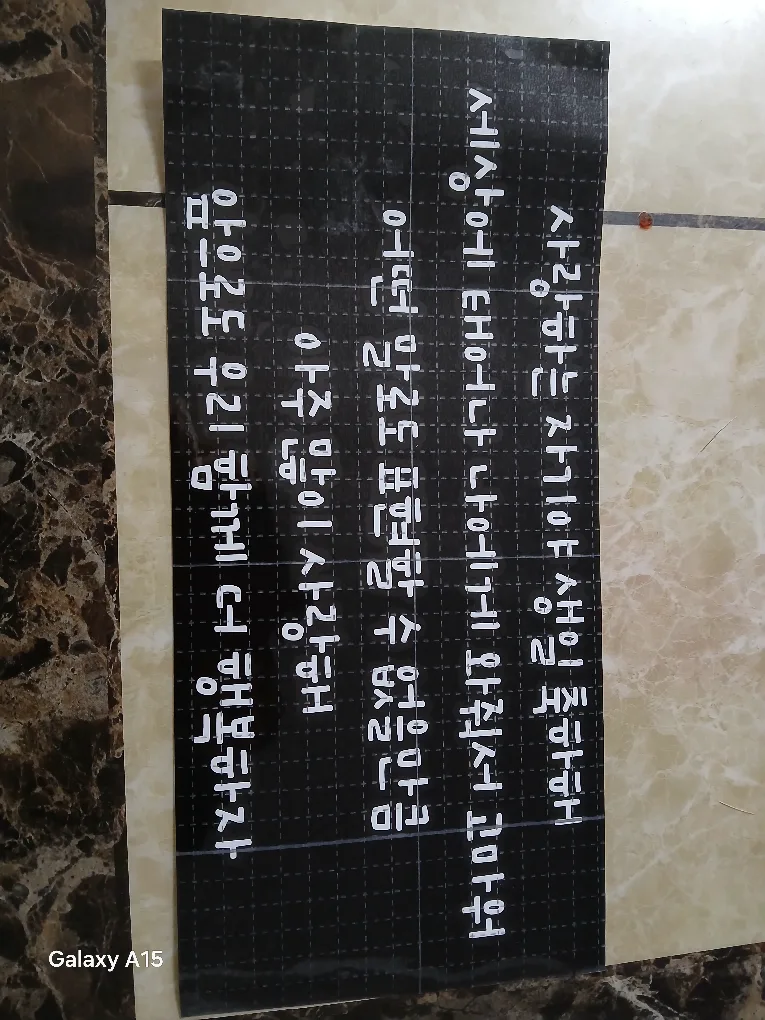 사랑하는 자기야 생일 축하해
세상에 태어나 나에게 와줘서 고마워
어떤 말로도 표현할 수 없을만큼
아주 많이 사랑해
앞으로도 우리 함께 더 행복하자
Galaxy A15